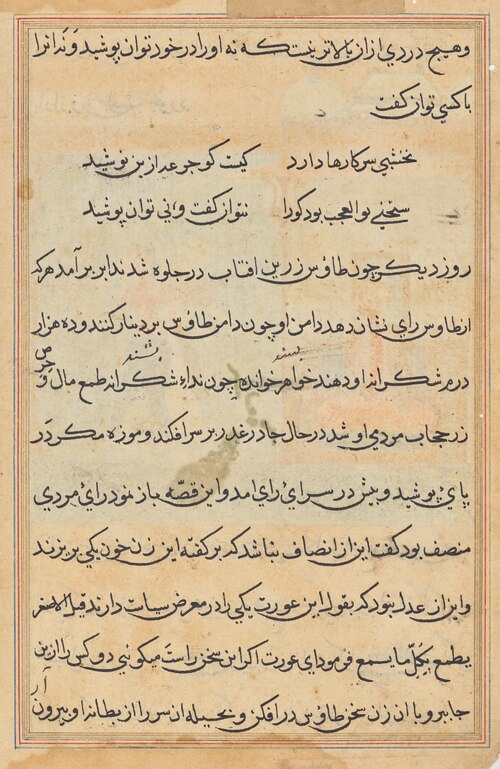 وهیچ دردی ازان بالاتر نیست که نه اورا در خود توان پوشید و نه انرا
باکسی توان کفت
نخشبی سر کارها دارد کیست کو جرعه ازین نوشید
سخنی بوالعجب بود کورا نتوان کفت و نی توان پوشید
روز دیکر چون طاؤس زرین افتاب در جلوه شد ندا بر برآمد هرکه
از طاوس رای نشان دهد دامن او چون دامن طاؤس بر دینار کنند و ده هزار
درم شکرانه او دهند خواهر خوانده چون نداء شکرانه بشنید طمع مال و حرص
زر حجاب مردمی او شد در حال چادر غدر بر سر افکند و موزه مکر در
پای پوشید و پیش در سرای رای امد و این قصّه باز نمود رای مردی
منصف بود کفت این از انصاف نباشد که بر کفته این زن خون یکی بریزند
و این از عدل نبود که بقول این عورت یکی را در معرض سیاست دارند قیل
یطمع بکُلّ ما یسمع فرمود ای عورت اکر این سخن راست میکوئی دو کس را ازین
جا ببر و با ان زن سخن طاؤس در افکن و بحیله ان سر را از بطانه او بیرون آر